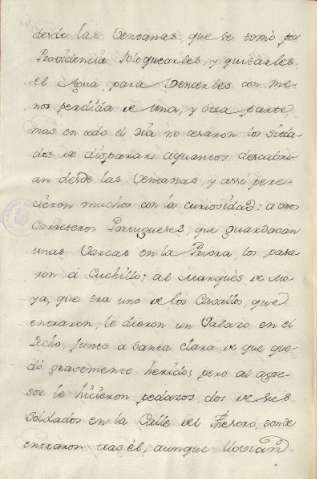 desde las Ventanas, que se tomó por
Providencia bloquearles, y quitarles
el Agua, para Vencerles con me-
nos perdida de una, y otra parte
mas en todo el dia no cesaron los sitia-
dos de disparar a quantos descubri-
an desde las Ventanas, y assi pere-
cieron muchos con la curiosidad: a otros
Carreteros Portugueses, que guardavan
unas Vacas en la Priora los pasa-
ron á Cuchillo: al Marqués de Mo-
ya, que era uno de los Cavallos que
entraron, le dieron un Valazo en el
Pecho, junto a Santa Clara de que que-
dó gravemente herido; pero al agre-
sor le hicieron pedazos dos de sus
Soldados en la Calle del Thesoro, donde
entraron tras él, aunque